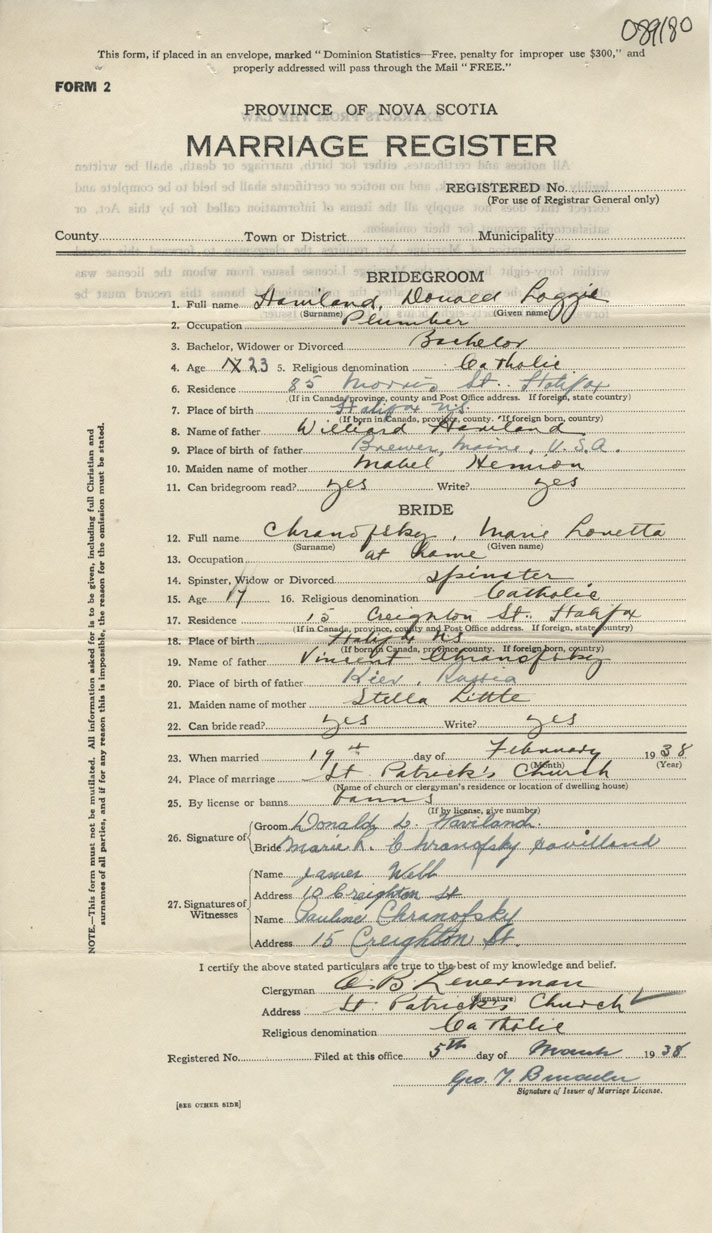 089180
This form, if placed in an envelope, marked "Dominion Statistics—Free, penalty for improper use $300," and
properly addressed will pass through the Mail "FREE."
FORM 2
PROVINCE OF NOVA SCOTIA
MARRIAGE REGISTER
REGISTERED No.
(For use of Registrar General only)
County Town or District Municipality
BRIDEGROOM
1. Full name Haviland, Donald Loggie
(Surname) (Given name)
2. Occupation Plumber
3. Bachelor, Widower or Divorced Bachelor
4. Age 23 5. Religious denomination Catholic
6. Residence 85 Morris St. Halifax
(If in Canada, province, county and Post Office address. If foreign, state country)
7. Place of birth Halifax N.S.
(If born in Canada, province, county. If foreign born, country)
8. Name of father Williard Haviland
9. Place of birth of father Brewer, Maine, U.S.A.
10. Maiden name of mother Mabel
11. Can bridegroom read? yes Write? yes
BRIDE
12. Full name Chranofsky, Marie Loretta
(Surname) (Given name)
13. Occupation at home
14. Spinster, Widow or Divorced Spinster
15. Age 17 16. Religious denomination Catholic
17. Residence 15 Creighton St. Halifax
(If in Canada, province, county and Post Office address. If foreign, state country)
18. Place of birth Halifax N.S.
(If born in Canada, province, county. If foreign born, country)
19. Name of father Vincent Chranofsky
20. Place of birth of father Kiev, Russia
21. Maiden name of mother Stella Little
22. Can bride read? yes Write? yes
23. When married 19th day of February 1938
(Month) (Year)
24. Place of marriage St Patrick's Church
(Name of church or clergyman's residence or location of dwelling house)
25. By license or banns banns
(If by license, give number)
26. Signature of
Groom Donald L. Haviland.
Bride Marie L. Chranofsky
27. Signatures of Witnesses
Name James Webb
Address 10 Creighton St
Name Pauline Chranofsky
Address 15 Creighton St.
I certify the above stated particulars are true to the best of my knowledge and belief.
Clergyman
(Signature)
Address St Patrick's Church
Religious denomination Catholic
Registered No. Filed at this office 5th day of March 1938
Geo. T.
Signature of Issuer of Marriage License.
[SEE OTHER SIDE]
NOTE.—This form must not be mutilated. All information asked for is to be given, including full Christian and
surnames of all parties, and if for any reason this is impossible, the reason for the omission must be stated.